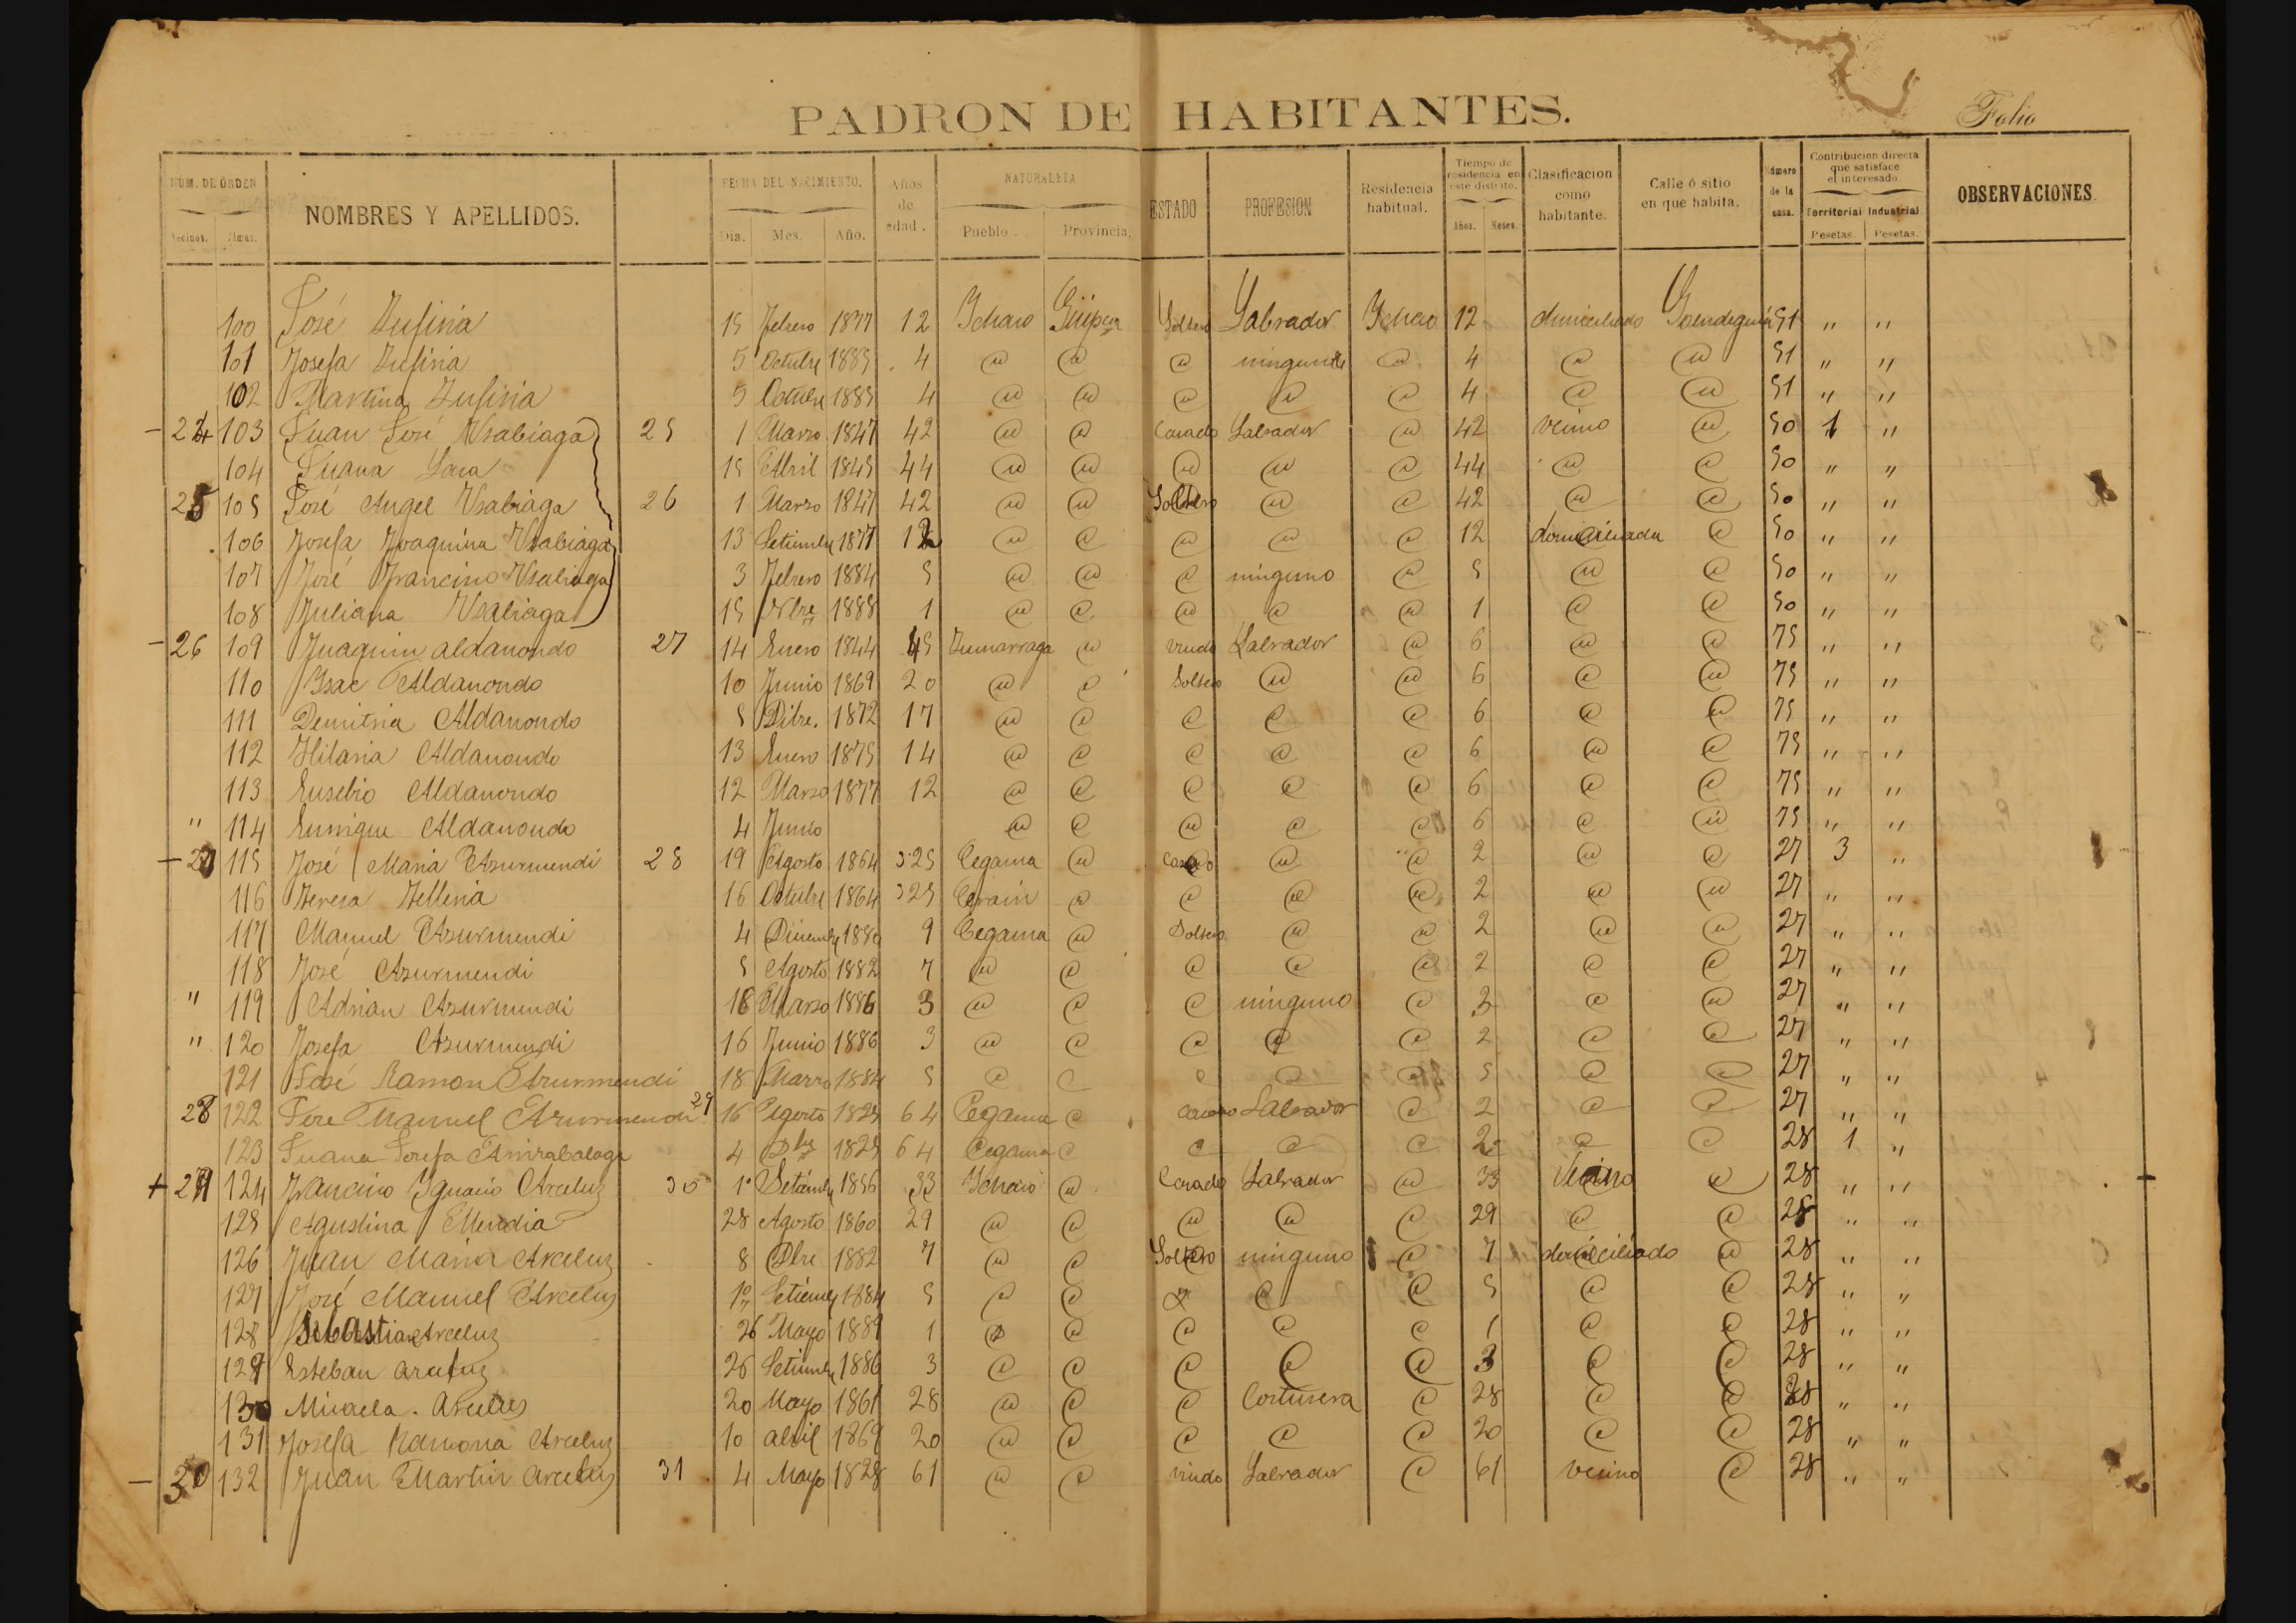 PADRON DE HABITANTES.
Folio
NUM. DE ÓRDEN
Vecinos. Almas.
NOMBRES Y APELLIDOS.
FECHA DEL NACIMIENTO.
Dia. Mes. Año.
Años de edad.
NATURALEZA
Pueblo. Provincia,
ESTADO
PROFESION
Residencia habitual.
Tiempo de residencia en este distrito.
Años. Meses.
Clasificacion como habitante.
Calle ó sitio en que habita.
Número de la casa.
Contribucion directa que satisface el interesado.
Territorial Industrial
Pesetas. Pesetas.
OBSERVACIONES
100 José 15 Febrero 1877 12 Ychaso Guipca Soltero Labrador Ychaso 12 domiciliado 51 " "
101 Josefa 5 Octubre 1885 4 @ @ @ @ 4 @ @ 51 " "
102 Martina 5 Octubre 1885 4 @ @ @ @ @ 4 @ @ 51 " "
- 24 103 Juan José Usabiaga 25 1 Marzo 1847 42 @ @ Casado Labrador @ 42 vecino @ 50 1 "
104 Juana 15 Abril 1845 44 @ @ @ @ @ 44 @ @ 50 " "
25 105 José Angel Usabiaga 26 1 Marzo 1847 42 @ @ Soltero @ @ 42 @ @ 50 " "
106 Josefa Joaquina Usabiaga 13 Setiembre 1877 12 @ @ @ @ @ 12 domiciliada @ 50 " "
107 José Francisco Usabiaga 3 Febrero 1884 5 @ @ @ ninguno @ 5 @ @ 50 " "
108 Juliana Usabiaga 15 1888 1 @ @ @ @ @ 1 @ @ 50 " "
- 26 109 Juaquin aldanondo 27 14 Enero 1844 45 Zumarraga @ viudo Labrador @ 6 @ @ 75 " "
110 Ysac Aldanondo 10 Junio 1869 20 @ @ Soltero @ @ 6 @ @ 75 " "
111 Demitria Aldanondo 5 Dibre. 1872 17 @ @ @ @ @ 6 @ @ 75 " "
112 Hilaria Aldanondo 13 Enero 1875 14 @ @ @ @ @ 6 @ @ 75 " "
113 Eusebio Aldanondo 12 Marzo 1877 12 @ @ @ @ @ 6 @ @ 75 " "
" 114 Enrrique Aldanondo 4 Junio @ @ @ @ @ 6 @ @ 75 " "
- 27 115 José Maria Azurmendi 28 19 Agosto 1864 25 Cegama @ Casado @ @ 2 @ @ 27 3 "
116 Teresa Telleria 16 Octubre 1864 25 Cerain @ @ @ @ 2 @ @ 27 " "
117 Manuel Azurmendi 4 Diciembre 1880 9 Cegama @ Soltero @ @ 2 @ @ 27 " "
118 José Azurmendi 5 Agosto 1882 7 @ @ @ @ @ 2 @ @ 27 " "
" 119 Adrian Azurmendi 16 Marzo 1886 3 @ @ @ ninguno @ @ @ 27 " "
" 120 Josefa Azurmendi 16 Junio 1886 3 @ @ @ @ @ 2 @ @ 27 " "
121 José Ramon Azurmendi 18 Marzo 1884 5 @ @ @ @ @ 5 @ @ 27 " "
28 122 José Manuel Azurmendi 29 16 Agosto 1825 64 Cegama @ casado Labrador @ 2 @ @ 27 " "
123 Juana Josefa 4 1825 64 Cegama @ @ @ @ 2 @ @ 28 1 "
+ 29 124 Francisco Ygnacio Arceluz 30 1º Setiembre 1856 33 Ychaso @ Casado Labrador @ 33 Vecino @ 28 " "
125 Agustina Mendia 28 Agosto 1860 29 @ @ @ @ @ 29 @ @ 28 " "
126 Juan Maria Arceluz 8 Dbre 1882 7 @ @ Soltero ninguno @ 7 domiciliado @ 28 " "
127 José Manuel Arceluz 10 Setiembre 1884 5 @ @ @ @ @ 5 @ @ 28 " "
128 Sebastian Arceluz 26 Mayo 1889 1 @ @ @ @ @ 1 @ @ 28 " "
129 Esteban arceluz 26 Setiembre 1886 3 @ @ @ @ @ 3 @ @ 28 " "
130 Micaela. Arceluz 20 Mayo 1861 28 @ @ @ Costurera @ 28 @ @ 28 " "
131 Josefa Ramona Arceluz 10 abril 1869 20 @ @ @ @ @ 20 @ @ 28 " "
- 30 132 Juan Martin arceluz 31 4 Mayo 1828 61 @ @ viudo Labrador @ 61 vecino @ 28 " "